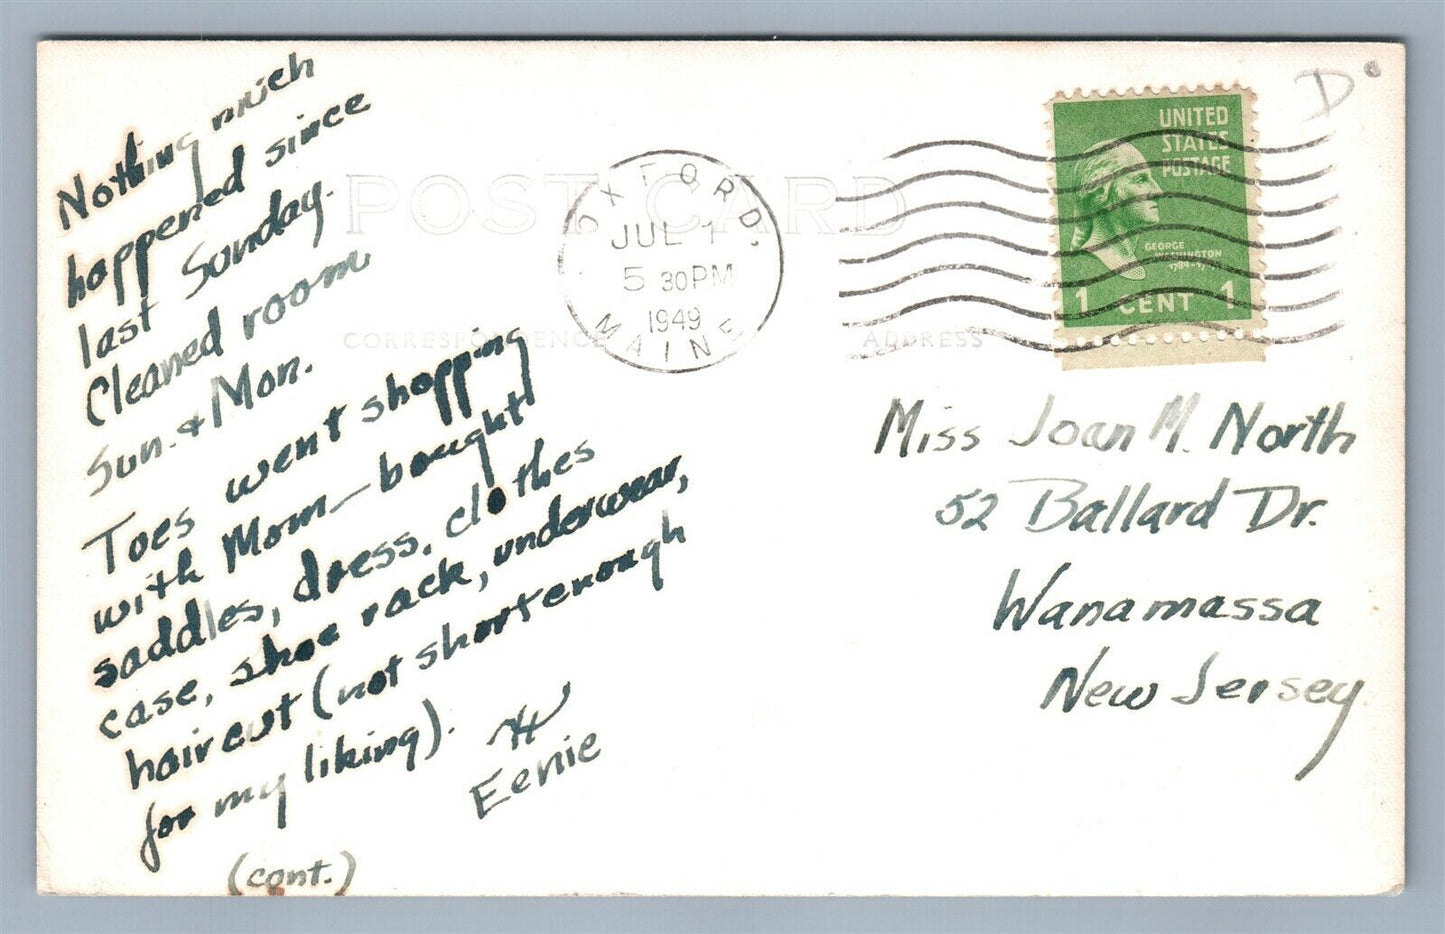 Nothing much
happened since
last Sunday.
Cleaned room
Sun. & Mon.
Toes went shopping
with Mom - bought
saddles, dress, clothes
case, shoe rack, underwear,
haircut (not short enough
for my liking).
Eenie
(cont.)
POST CARD
CORRESPONDENCE
ADDRESS
OXFORD.
JUL 1
5 30 PM
1949
MAINE
UNITED
STATES
POSTAGE
GEORGE
WASHINGTON
1789-17
1 CENT 1
D
Miss Joan M. North
52 Ballard Dr.
Wanamassa
New Jersey